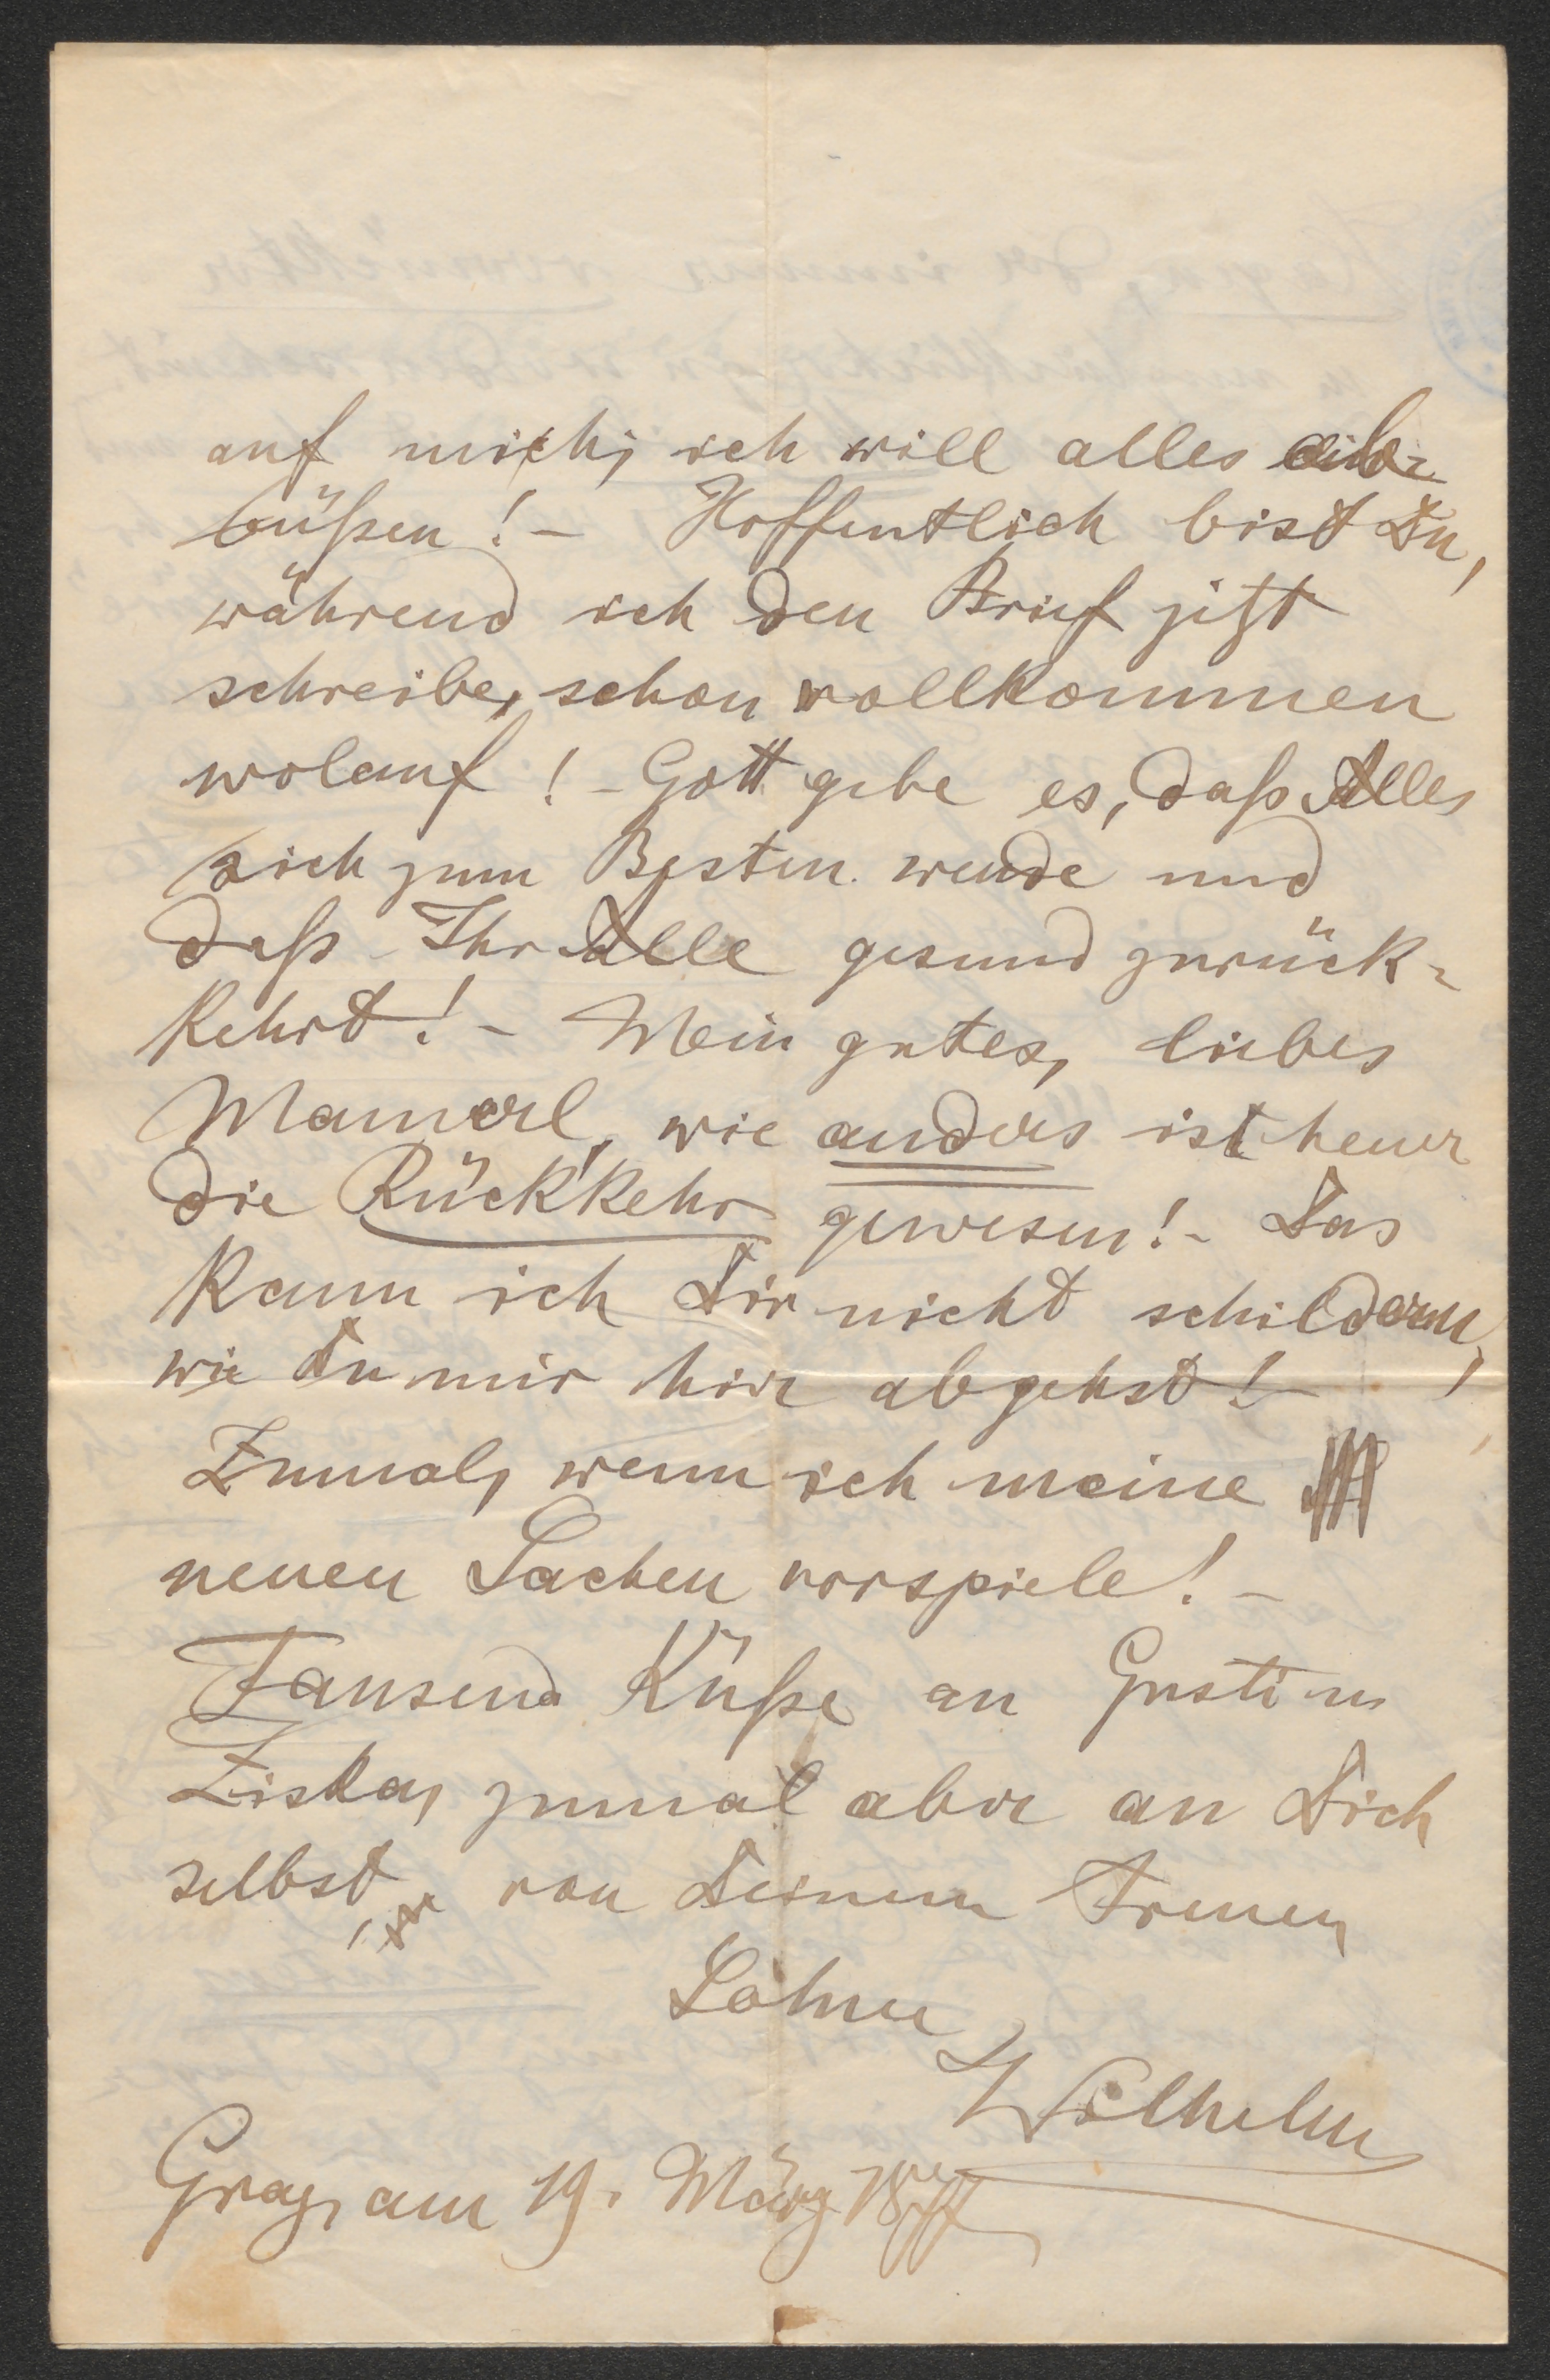 auf mich, ich will alles ab-
büßen! - Hoffentlich bist Du,
während ich den Brief jetzt
schreibe, schon vollkommen
wolauf! - Gott gebe es, daß Alles
sich zum Besten wende und
daß Ihr Alle gesund zurück-
kehrt! - Mein gutes, liebes
Mamerl, wie anders ist heuer
die Rückkehr gewesen! - Das
kann ich Dir nicht schildern,
wie Du mir hier abgehst! -
Zumal, wenn ich meine
neuen Sachen vorspiele! -
Tausend Küße an Gusti u
Ziska, zumal aber an Dich
selbst, von Deinem treuen
Sohne
Wilhelm
Graz, am 19. März